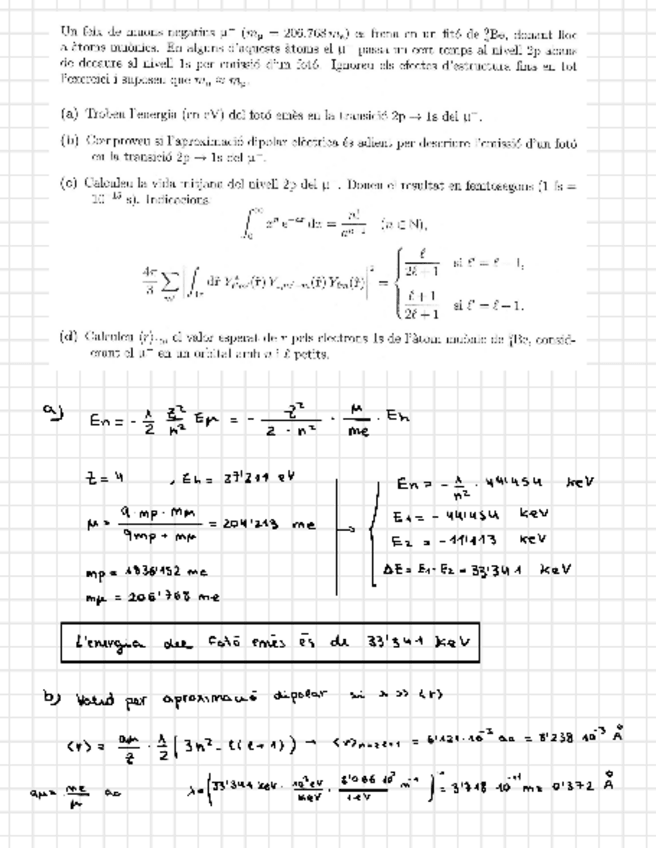 Un feix de muons negatius μ⁻ (m_μ = 206.768 m_e) es frena en un fitó de ⁹₄Be, donant lloc
a àtoms muònics. En alguns d'aquests àtoms el μ⁻ passa un cert temps al nivell 2p abans
de decaure al nivell 1s per emissió d'un fotó. Ignoreu els efectes d'estructura fina en tot
l'exercici i suposeu que
(a) Trobeu l'energia (en eV) del fotó emès en la transició 2p → 1s del μ⁻.
(b) Comproveu si l'aproximació dipolar elèctrica és adient per descriure l'emissió d'un fotó
en la transició 2p → 1s del μ⁻.
(c) Calculeu la vida mitjana del nivell 2p del μ⁻. Doneu el resultat en femtosegons (1 fs =
10⁻¹⁵ s). Indicacions
∫₀^∞ xⁿ e^(-ax) dx = n!/aⁿ⁺¹ (n ∈ N),
4π/3 Σ = { ℓ/(2ℓ+1) si ℓ' = ℓ − 1,
(ℓ+1)/(2ℓ+1) si
(d) Calculeu el valor esperat de r pels electrons 1s de l'àtom muònic de ⁹₄Be, consid-
erant el μ⁻ en un orbital amb n i ℓ petits.
a) En = - 1/2 Z²/n² Eμ = - Z²/(2 · n²) · μ/me · Eh
Z = 4 , Eh = 27'211 eV
μ = (9 mp · mμ)/(9mp + mμ) = 204'213 me
mp = 1836'152 me
mμ = 206'768 me
En = - 1/n² · 44'454 keV
E1 = - 44'454 keV
E2 = - 11'113 keV
ΔE = E1 - E2 = 33'341 keV
L'energia del fotó emès és de 33'341 keV
b) Vàlid per aproximació dipolar si λ >> ⟨r⟩
⟨r⟩ = aμ/Z · 1/2 (3n² - ℓ(ℓ+1)) → ⟨r⟩n=2 ℓ=1 = 6'121·10⁻³ a0 = 3'238 10⁻³ Å
aμ = me/μ a0 λ = (33'341 keV · 10³eV/keV · 8'066 10⁵/1eV m⁻¹)⁻¹ = 3'718 10⁻¹¹ m = 0'372 Å